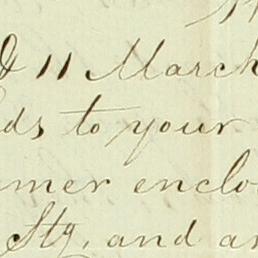 11 March
to your
enclo
Stg, and